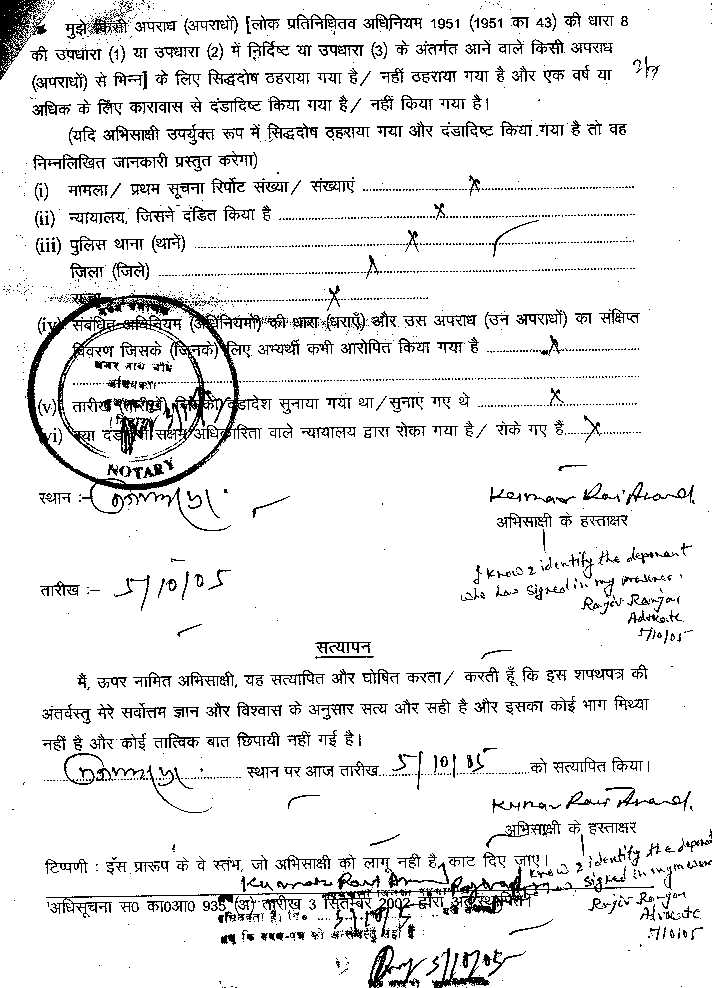 मुझे किसी अपराध (अपराधों) [लोक प्रतिनिधितव अधिनियम 1951 (1951 का 43) की धारा 8
की उपधारा (1) या उपधारा (2) में निर्दिष्ट या उपधारा (3) के अंतर्गत आने वाले किसी अपराध
(अपराधों) से भिन्न] के लिए सिद्धदोष ठहराया गया है/ नहीं ठहराया गया है और एक वर्ष या
अधिक के लिए कारावास से दंडादिष्ट किया गया है/ नहीं किया गया है।
(यदि अभिसाक्षी उपर्युक्त रूप में सिद्धदोष ठहराया गया और दंडादिष्ट किया गया है तो वह
निम्नलिखित जानकारी प्रस्तुत करेगा)
(i) मामला/ प्रथम सूचना रिर्पोट संख्या/ संख्याएं ........ X
(ii) न्यायालय, जिसने दंडित किया है ........ X
(iii) पुलिस थाना (थानें) ........ X
जिला (जिले) ........ X
X
(iv) संबंधित अधिनियम (अधिनियमों) की धारा (धाराएँ) और उस अपराध (उन अपराधों) का संक्षिप्त
विवरण जिसके (जिनके) लिए अभ्यर्थी कभी आरोपित किया गया है ........ X
(v) तारीख (तारीखें) जिनको दंडादेश सुनाया गया था/सुनाए गए थे ........ X
(vi) क्या दंड सक्षम अधिकारिता वाले न्यायालय द्वारा रोका गया है/ रोके गए हैं.... X
NOTARY
स्थान :-
Kumar Ravi Anand.
अभिसाक्षी के हस्ताक्षर
I know & identify the deponent
who has signed in my presence.
Rajiv Ranjan
Advocate
5/10/05
तारीख :- 5/10/05
सत्यापन
मैं, ऊपर नामित अभिसाक्षी, यह सत्यापित और घोषित करता/ करती हूँ कि इस शपथपत्र की
अंतर्वस्तु मेरे सर्वोत्तम ज्ञान और विश्वास के अनुसार सत्य और सही है और इसका कोई भाग मिथ्या
नहीं है और कोई तात्विक बात छिपायी नहीं गई है।
स्थान पर आज तारीख 5/10/05 को सत्यापित किया।
Kumar Ravi Anand.
अभिसाक्षी के हस्ताक्षर
टिप्पणी : इस प्रारूप के वे स्तंभ, जो अभिसाक्षी को लागू नही है, काट दिए जाए।
I know & identify the deponent
signed in my presence
Rajiv Ranjan
Advocate
5/10/05
Kumar Ravi Anand
अधिसूचना स0 का0आ0 935 (अ) तारीख 3 सितम्बर 2002 द्वारा
5/10/05